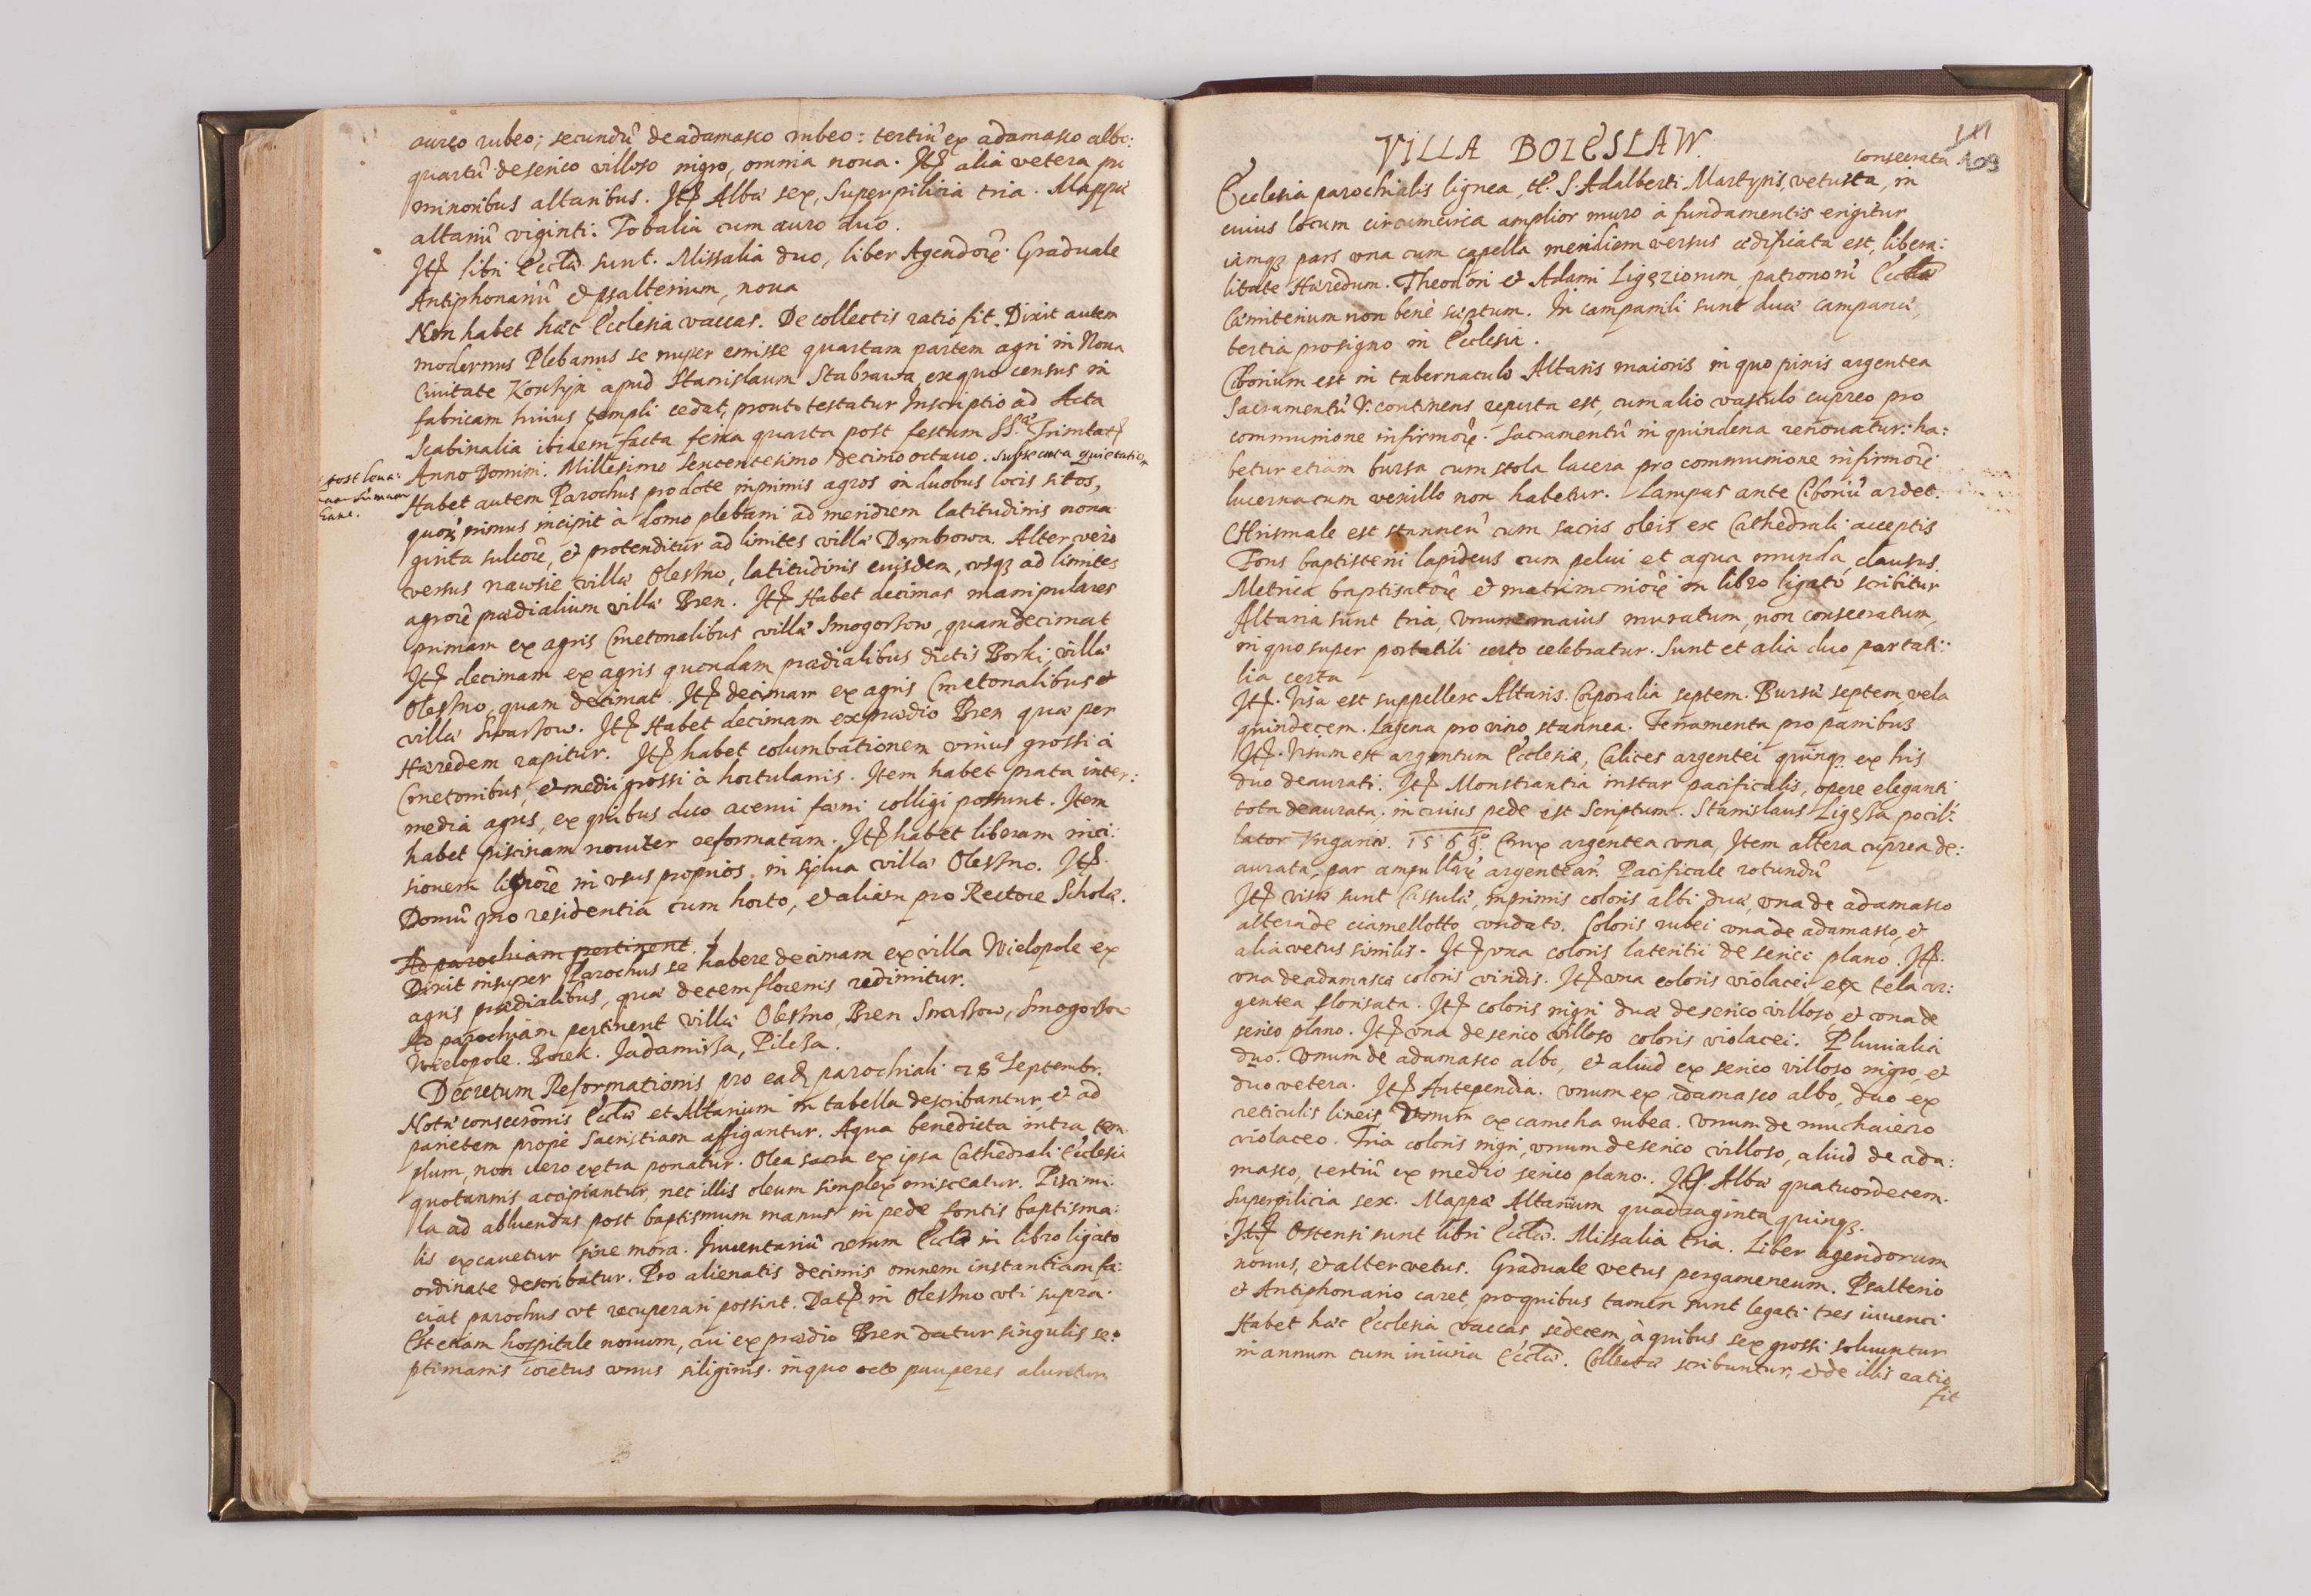 aureo rubeo; secundũ de adamasco rubeo: tertiũ ex adamasco albo:
quartũ de serico villoso nigro, omnia noua. Itẽ alia vetera pro
minoribus altaribus. Itẽ Albæ sex, Superpilicia tria. Mappæ
altariũ viginti. Tobalia cum auro duo.
Itẽ libri Eccłæ sunt. Missalia duo, liber Agendorũ. Graduale
Antiphonariũ et psalterium, noua
Non habet hæc Ecclesia vaccas. De collectis ratio fit. Dixit autem
modernus Plebanus se nuper emisse quartam partem agri in Noua
Ciuitate Korczyn apud Stanislaum Stabrawa, ex quo census in
fabricam huius templi cedat, prout testatur Inscriptio ad Acta
Scabinalia ibidem facta feria quarta post festum SS.æ Trinitatẽ
Anno Domini. Millesimo Sexcentesimo decimo octauo. Subsecuta quietatio
Habet autem Parochus pro dote inprimis agros in duobus locis sitos,
quorũ primus incipit à domo plebani ad meridiem latitudinis nona
ginta sulcorũ, et protenditur ad limites villæ Dąmbrowa. Alter vero
versus nawsie villæ Olesno, latitudinis eiusdem, vsq; ad limites
agrorũ prædialium villæ Bren. Itẽ Habet decimas manipulares
primam ex agris Cmetonalibus villæ Smogorzow, quam decimat
Itẽ decimam ex agris quondam prædialibus dictis Borki, villæ
Olesno, quam decimat. Itẽ decimam ex agris Cmetonalibus et
villæ Swarzow. Itẽ Habet decimam ex prædio Bren quæ per
Hæredem rapitur. Itẽ habet columbationem vnius grossi à
Cmetonibus, et medii grossi à hortulanis. Item habet prata inter:
media agris, ex quibus duo acerui fæni colligi possunt. Item
habet piscinam nouiter reformatam. Itẽ habet liberam inci:
sionem lignorũ in vsus proprios in sylua villæ Olesno. Itẽ
Domũ pro residentia cum horto, et aliam pro Rectore Scholæ.
Ad parochiam pertinent.
Dixit insuper Parochus se habere decimam ex villa Wielopole ex
agris prædialibus, quæ decem florenis redimitur.
Ad parochiam pertinent villæ Olesno, Bren Swarzow, Smogorzow
Wielopole. Borek. Iadamisza, Pilcza.
Decretum Reformationis pro eadẽ parochiali 28ª Septembr.
Notæ consecrõnis Eccłæ et Altarium in tabella describantur, et ad
parietem propè Sacristiam affigantur. Aqua benedicta intra tem
plum, non vero extra ponatur. Olea sacra ex ipsa Cathedrali Ecclesia
quotannis accipiantur, nec illis oleum simplex misceatur. Piscinu:
la ad abluendas post baptismum manus in pede fontis baptisma:
lis excauetur sine mora. Inuentariũ rerum Eccłæ in libro ligato
ordinate describatur. Pro alienatis decimis omnem instantiam fa:
ciat parochus vt recuperari possint. Datẽ in Olesno vti supra.
Est etiam hospitale nouum, cui ex prædio Bren datur singulis se:
ptimanis coretus vnus siliginis. in quo octo pauperes aluntur
VILLA BOLESLAW.
consecrata
109
Ecclesia parochialis lignea, tt. S. Adalberti Martyris, vetusta, in
cuius locum circumcirca amplior muro à fundamentis erigitur
iamq; pars vna cum capella meridiem versus ædificata est, libera:
litate Hæredum. Theodori et Adami Ligęziorum, patronorũ Eccłæ
Cæmiterium non benè septum. In campanili sunt duæ campanæ,
tertia pro signo in Ecclesia.
Ciborium est in tabernaculo Altaris maioris in quo pixis argentea
Sacramentũ V: continens reperta est, cum alio vasculo cupreo pro
communione infirmorũ. Sacramentũ in quindena renouatur: ha:
betur etiam bursa cum stola lacera pro communione infirmorũ
lucerna cum vexillo non habetur. Lampas ante Ciboriũ ardet.
Chrismale est stanneũ cum sacris oleis ex Cathedrali acceptis
Fons baptisterii lapideus cum pelui et aqua munda, clausus.
Metrica baptisatorũ et matrimoniorũ in libro ligato scribitur
Altaria sunt tria, vnum maius muratum, non consecratum,
in quo super portatili certo celebratur. Sunt et alia duo portati:
lia certa
Itẽ. Visa est suppellex Altaris. Corporalia septem. Bursæ septem, vela
quindecem. Lagena pro vino stannea. Ferramenta pro panibus
Itẽ. Visum est argentum Ecclesiæ, Calices argentei quinq; ex his
duo deaurati. Itẽ Monstrantia instar pacificalis, opere eleganti
tota deaurata, in cuius pede est Scriptum. Stanislaus Ligęza pocil:
lator Vngariæ. 1569. Crux argentea vna, Item altera cuprea de:
aurata, par ampullarũ argentearũ. Pacificale rotundũ
Itẽ visæ sunt Cassulæ, inprimis coloris albi duæ, vna de adamasco
altera de ciamellotto vndato. Coloris rubei vna de adamasco, et
alia vetus similis. Itẽ vna coloris lateritii de serico plano. Itẽ
vna de adamasco coloris viridis. Itẽ vna coloris violacei ex tela ar:
gentea florisata. Itẽ coloris nigri duæ de serico villoso, et vna de
serico plano. Itẽ vna de serico villoso coloris violacei. Pluuialia
duo. Vnum de adamasco albo, et aliud ex serico villoso nigro, et
duo vetera. Itẽ Antependia. vnum ex adamasco albo, duo ex
reticulis lineis vnum ex camcha rubea. Vnum de muchaiero
violaceo. Tria coloris nigri, vnum de serico villoso, aliud de ada:
masco, tertiũ ex medio serico plano. Itẽ Albæ quatuordecem.
Superpilicia sex. Mappæ Altarium quadraginta quinq;.
Itẽ Ostensi sunt libri Eccłæ. Missalia tria. Liber agendorum
nouus, et alter vetus. Graduale vetus pergameneum. Psalterio
et Antiphonario caret, pro quibus tamen sunt legati tres iuuenci
Habet hæc Ecclesia vaccas sedecem, à quibus sex grossi soluuntur
in annum cum iniuria Eccłæ. Collectæ scribuntur, et de illis ratio
fit